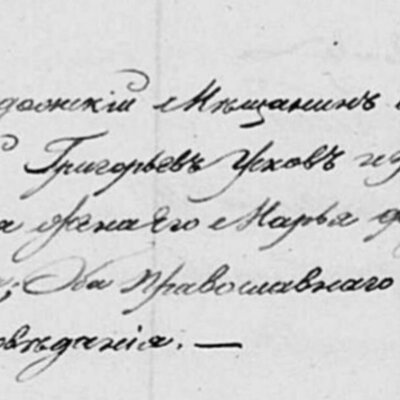 должскій Мѣщанинъ
Григорьевъ Усковъ
жена его Марья
; Оба Православнаго
овѣданія. —